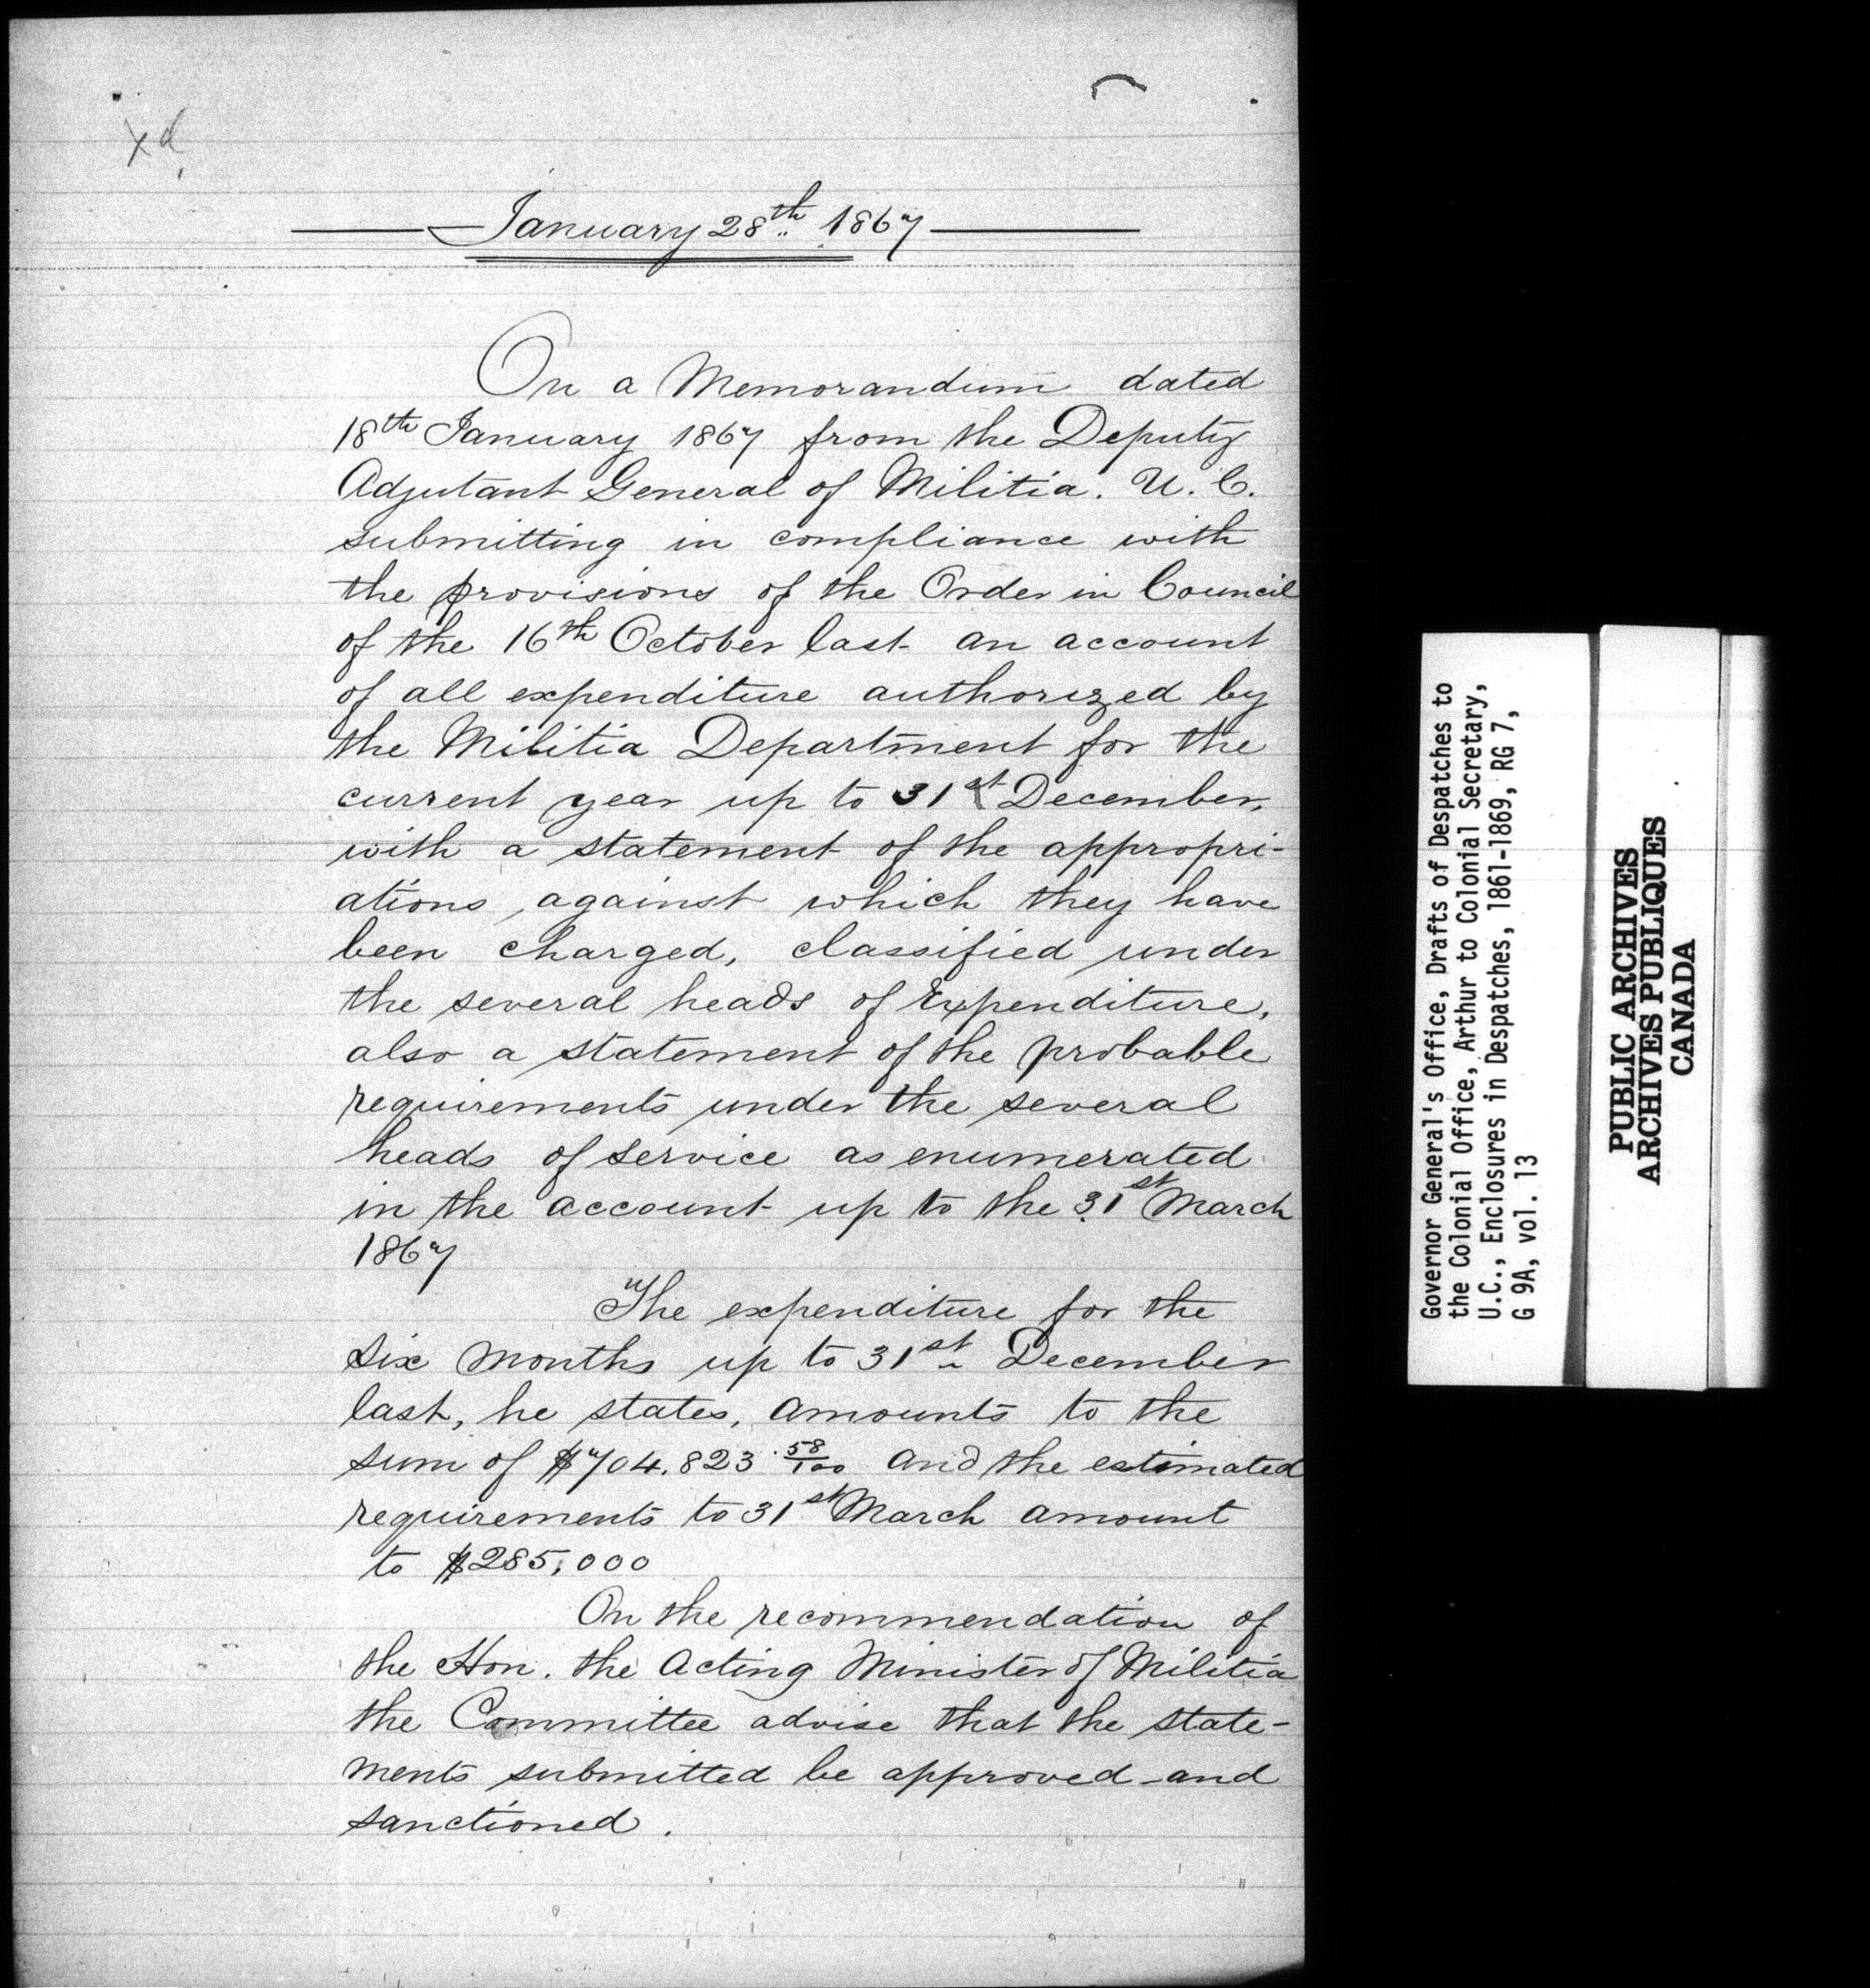 xd
January 28th 1867
On a Memorandum dated
18th January 1867 from the Deputy
Adjutant General of Militia. U. C.
submitting in compliance with
the provisions of the Order in Council
of the 16th October last an account
of all expenditure authorized by
the Militia Department for the
current year up to 31st December,
with a statement of the appropri-
ations, against which they have
been charged, classified under
the several heads of Expenditure,
also a statement of the probable
requirements under the several
heads of service as enumerated
in the account up to the 31st March
1867
The expenditure for the
six months up to 31st December
last, he states, amounts to the
sum of $704.823 58/100 and the estimated
requirements to 31st March amount
to $285,000
On the recommendation of
the Hon. the Acting Minister of Militia
the Committee advise that the state-
ments submitted be approved and
sanctioned.
Governor General's Office, Drafts of Despatches to
the Colonial Office, Arthur to Colonial Secretary,
U.C., Enclosures in Despatches, 1861-1869, RG 7,
G 9A, vol. 13
PUBLIC ARCHIVES
ARCHIVES PUBLIQUES
CANADA